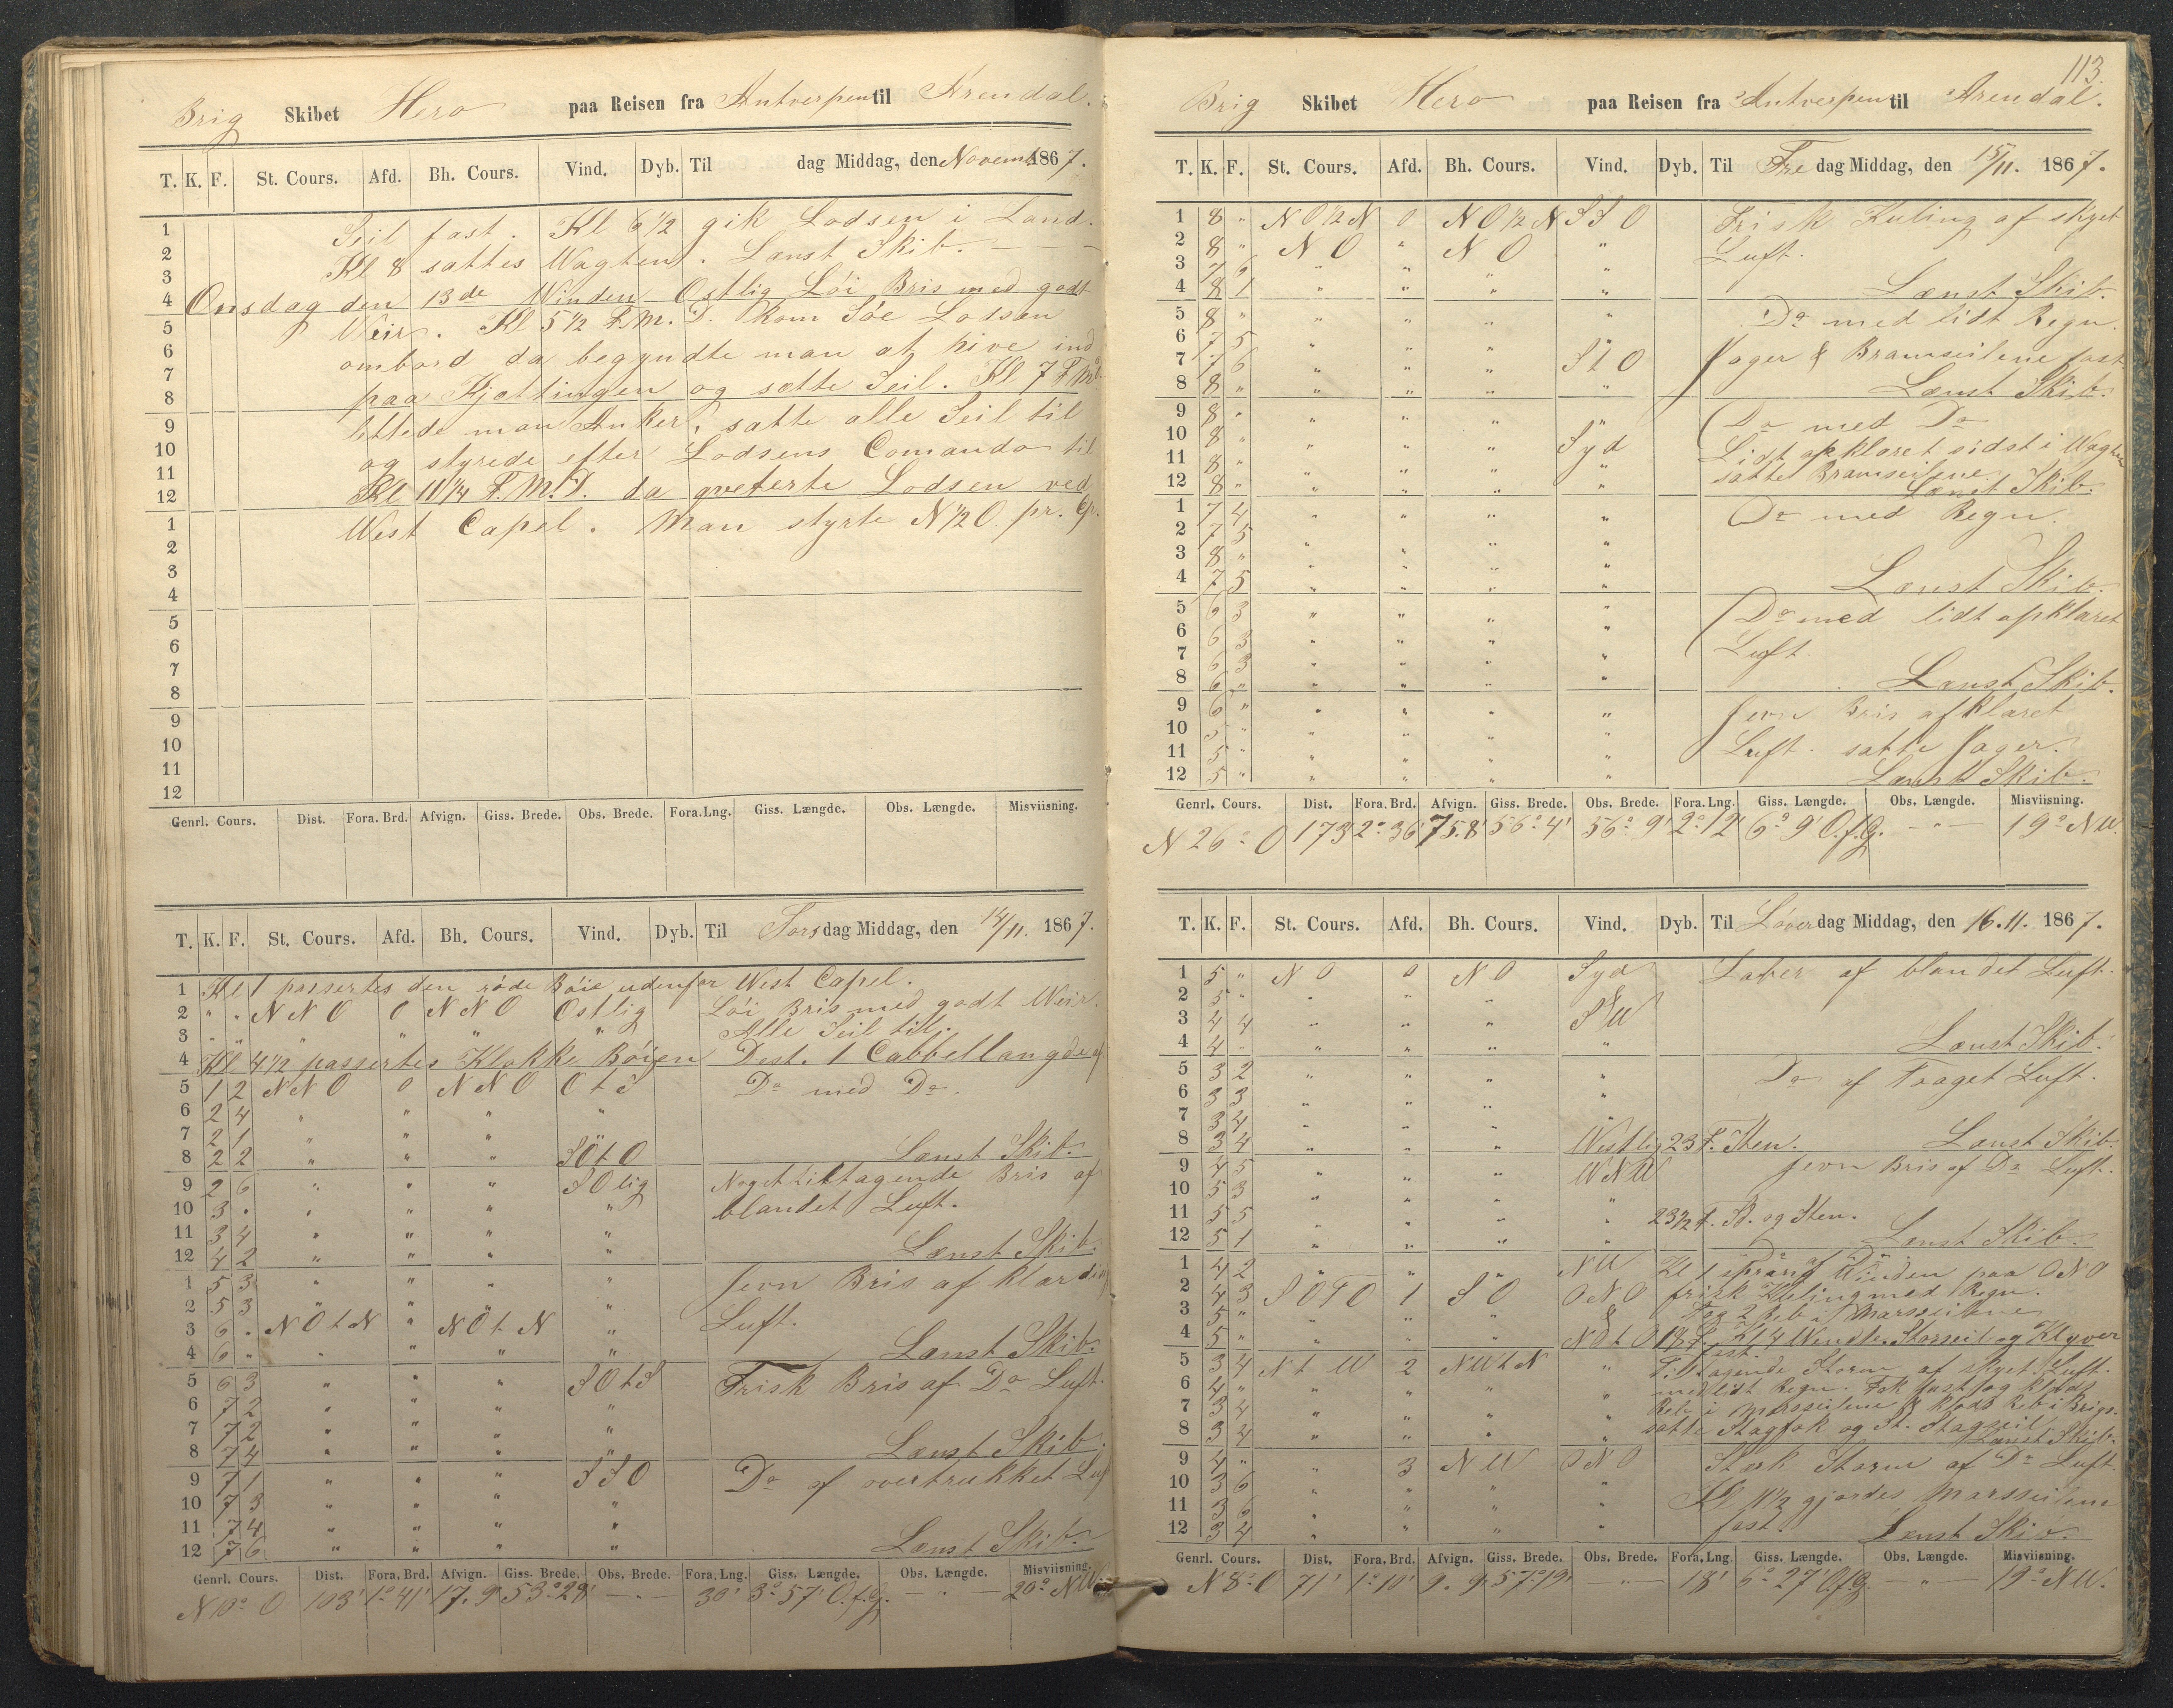 Brig Skibet Hero paa Reisen fra Antverpen til Arendal.
T. K. F. St. Cours. Afd. Bh. Cours. Vind. Dyb. Til dag Middag, den Novemb. 1867.
1 Seil fast. Kl 6 1/2 gik Lodsen i Land.
2 Kl 8 sattes Wagten. Lænst Skib. — — —
3
4 Onsdag den 13de Winden Ostlig Löi Bris med godt
5 Weir. Kl 5 1/2 F.M.D. kom Söe Lodsen
6 ombord da begyndte man at hive ind
7 paa Kjættingen og sætte Seil. Kl 7 F.M.
8 lettede man Anker, satte alle Seil til
9
10 og styrede efter Lodsens Comando til
11 Kl 11 1/4 F.M.D. da qveterte Lodsen ved
12
1 West Capel. Man styrte N 1/2 O. pr. Cp.
2
3
4
5
6
7
8
9
10
11
12
Genrl. Cours. Dist. Fora. Brd. Afvign. Giss. Brede. Obs. Brede. Fora.Lng. Giss. Længde. Obs. Længde. Misviisning.
T. K. F. St. Cours. Afd. Bh. Cours. Vind. Dyb. Til Torsdag Middag, den 14/11. 1867.
1 Kl 1 passertes den röde Böie udenfor West Capel.
2 " " N N O 0 N N O Ostlig Löi Bris med godt Weir.
3 " " " " " " Alle Seil til.
4 Kl 4 1/2 passertes Klokke Böien Dest. 1 Cabbellangde af
5 1 2 N N O 0 N N O O t S Do med Do.
6 2 4 " " " "
7 2 1 " " "
8 2 2 " " " S O t O Lænst Skib.
9 2 6 " " " S O lig Noget tiltagende Bris af
10 3 " " " " " blandet Luft.
11 3 4 " " " "
12 4 2 " " " " Lænst Skib.
1 5 3 " " " " Jevn Bris af klar
2 5 3 " " " "
3 6 " N O t N " N O t N " Luft.
4 6 " " " " " Lænst Skib.
5 6 3 " " " S O t S Frisk Bris af Do Luft.
6 7 2 " " " "
7 7 2 " " " "
8 7 4 " " " " Lænst Skib.
9 7 1 " " " S S O Do af overtrukket Luft
10 7 3 " " " "
11 7 4 " " " "
12 7 6 " " " " Lænst Skib.
Genrl. Cours. Dist. Fora. Brd. Afvign. Giss. Brede. Obs. Brede. Fora.Lng. Giss. Længde. Obs. Længde. Misviisning.
N 10° O 103' 1° 41' 17.9' 53° 28' — " — 30' 3° 57' O.f.G. — " — 20° NW
113.
Brig Skibet Hero paa Reisen fra Antverpen til Arendal.
T. K. F. St. Cours. Afd. Bh. Cours. Vind. Dyb. Til Fredag Middag, den 15/11. 1867.
1 8 " N O 1/2 N 0 N O 1/2 N S S O Frisk Kuling af skyet
2 8 " N O " N O " Luft.
3 7 6 " " " "
4 8 1 " " " " Lænst Skib.
5 8 " " " " " Do med lidt Regn.
6 7 5 " " " "
7 7 6 " " " S t O Jager & Bramseilene fast
8 8 " " " " " Lænst Skib.
9 8 " " " " " Do med Do
10 8 " " " " Syd Lidt opklaret sidst i Wagten
11 8 " " " " " satte Bramseilene.
12 8 " " " " " Lænst Skib.
1 7 4 " " " " Do med Regn.
2 7 5 " " " "
3 8 " " " " "
4 7 5 " " " " Lænst Skib.
5 6 3 " " " " Do med lidt opklaret
6 6 3 " " " "
7 6 3 " " " " Luft.
8 6 " " " " " Lænst Skib.
9 6 " " " " " Jevn Bris af klaret
10 5 " " " " "
11 5 " " " " " Luft. satte Jager.
12 5 " " " " " Lænst Skib.
Genrl. Cours. Dist. Fora. Brd. Afvign. Giss. Brede. Obs. Brede. Fora.Lng. Giss. Længde. Obs. Længde. Misviisning.
N 26° O 173 2° 36' 75.8' 56° 4' 56° 9' 2° 12' 6° 9' O.f.G. — " — 19° NW.
T. K. F. St. Cours. Afd. Bh. Cours. Vind. Dyb. Til Löverdag Middag, den 16.11. 1867.
1 5 " N O 0 N O Syd Laber af blandet Luft.
2 5 " " " "
3 4 4 " " " S W
4 4 " " " " " Lænst Skib.
5 3 2 " " " " Do af Taaget Luft.
6 3 3 " " "
7 3 4 " " " "
8 3 4 " " " Westlig 23 F. Sten. Lænst Skib.
9 4 5 " " " W N W Jevn Bris af Do Luft.
10 5 3 " " " "
11 5 5 " " " " 23 1/2 F. Sd. og Sten.
12 5 1 " " " " Lænst Skib.
1 4 2 " " " N W Do af Do Kl 1 sprang Winden paa O N O
2 4 3 S O t O 1 S O O N O frisk Kuling med Regn.
3 5 " " " " Tog 2 Reb i Marsseilene
4 5 " " " " N O t O 18 F. Kl 4 Wendte. Storseil og Klyver fast.
5 3 4 N t W 2 N W t N " Tiltagende Storm af skyet Luft.
6 4 " " " " " med lidt Regn. Fok fast og klods
7 3 4 " " " " Reb i Marsseilene & klods Reb i Brigs.
8 3 4 " " " " satte Stagfok og St. Stagseil. Lænst Skib.
9 4 " " 3 N W O N O Stærk Storm af Do Luft.
10 3 6 " " " "
11 3 6 " " " " Kl 11 1/2 gjordes Marsseilene
12 3 4 " " " " fast. Lænst Skib.
Genrl. Cours. Dist. Fora. Brd. Afvign. Giss. Brede. Obs. Brede. Fora.Lng. Giss. Længde. Obs. Længde. Misviisning.
N 8° O 71' 1° 10' 9.9' 57° 19' — " — 18' 6° 27' O.f.G. — " — 19° NW.